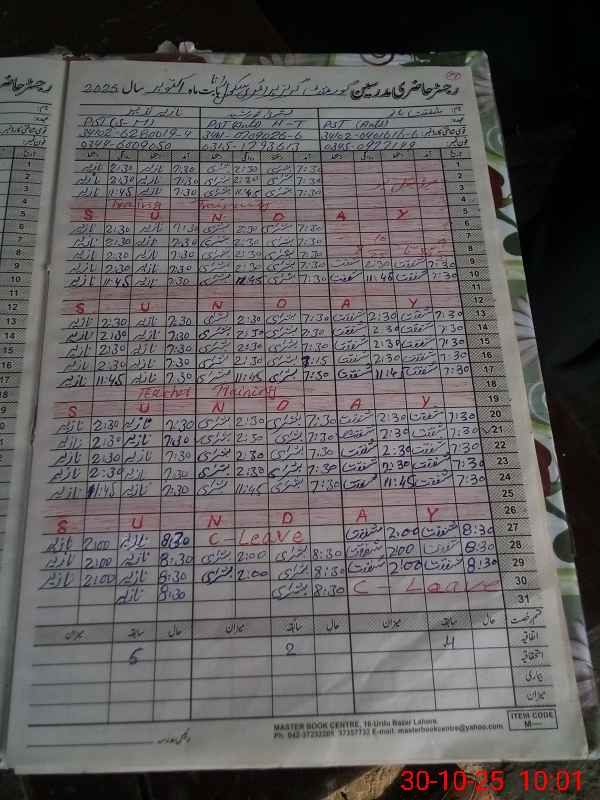 رجسٹر حاضری مدرسین گورنمنٹ گرلز پرائمری سکول بابت ماہ اکتوبر سال 2025
نام: شفقت نازیہ
PST (BA, BEd) PST
34602-0401616-6 34602-6280019-4
0345-0977149 0315-1793613 0344-6009050
تاریخ آمد دستخط روانگی دستخط آمد دستخط روانگی دستخط آمد دستخط روانگی دستخط
1 7:30 بشریٰ 2:30 بشریٰ 7:30 نازیہ 2:30 نازیہ
2 7:30 بشریٰ 2:30 بشریٰ 7:30 نازیہ 2:30 نازیہ
3 7:30 بشریٰ 11:45 بشریٰ 7:30 نازیہ 11:45 نازیہ
4 Training
5 S U N D A Y
6 7:30 بشریٰ 2:30 بشریٰ 7:30 نازیہ 2:30 نازیہ
7 7:30 بشریٰ 2:30 بشریٰ 7:30 نازیہ 2:30 نازیہ
8 7:30 بشریٰ 2:30 بشریٰ 7:30 نازیہ 2:30 نازیہ
9 7:30 شفقت 2:30 شفقت 7:30 بشریٰ 2:30 بشریٰ 7:30 نازیہ 2:30 نازیہ
10 7:30 شفقت 11:45 شفقت 7:30 بشریٰ 11:45 بشریٰ 7:30 نازیہ 11:45 نازیہ
11
12 S U N D A Y
13 7:30 شفقت 2:30 شفقت 7:30 بشریٰ 2:30 بشریٰ 7:30 نازیہ 2:30 نازیہ
14 7:30 شفقت 2:30 شفقت 7:30 بشریٰ 2:30 بشریٰ 7:30 نازیہ 2:30 نازیہ
15 7:30 شفقت 2:30 شفقت 7:30 بشریٰ 2:30 بشریٰ 7:30 نازیہ 2:30 نازیہ
16 7:30 شفقت 2:30 شفقت 7:15 بشریٰ 2:30 بشریٰ 7:30 نازیہ 2:30 نازیہ
17 7:30 شفقت 11:45 شفقت 7:30 بشریٰ 11:45 بشریٰ 7:30 نازیہ 11:45 نازیہ
18 Teacher Training
19 S U N D A Y
20 7:30 شفقت 2:30 شفقت 7:30 بشریٰ 2:30 بشریٰ 7:30 نازیہ 2:30 نازیہ
21 7:30 شفقت 2:30 شفقت 7:30 بشریٰ 2:30 بشریٰ 7:30 نازیہ 2:30 نازیہ
22 7:30 شفقت 2:30 شفقت 7:30 بشریٰ 2:30 بشریٰ 7:30 نازیہ 2:30 نازیہ
23 7:30 شفقت 2:30 شفقت 7:30 بشریٰ 2:30 بشریٰ 7:30 نازیہ 2:30 نازیہ
24 7:30 شفقت 11:45 شفقت 7:30 بشریٰ 11:45 بشریٰ 7:30 نازیہ 11:45 نازیہ
25
26 S U N D A Y
27 8:30 شفقت 2:00 شفقت C - Leave 8:30 نازیہ 2:00 نازیہ
28 8:30 شفقت 2:00 شفقت 8:30 بشریٰ 2:00 بشریٰ 8:30 نازیہ 2:00 نازیہ
29 8:30 شفقت 2:00 شفقت 8:30 بشریٰ 2:00 بشریٰ 8:30 نازیہ 2:00 نازیہ
30 C - Leave 8:30 بشریٰ 8:30 نازیہ
31
قسم رخصت حال سابقہ میزان حال سابقہ میزان حال سابقہ میزان
اتفاقیہ 4 2 5
استحقاقیہ
بیماری
میزان
ITEM CODE
M—
MASTER BOOK CENTRE, 16-Urdu Bazar Lahore.
Ph: 042-37232205 37357732 E-mail: masterbookcentre@yahoo.com
30-10-25 10:01